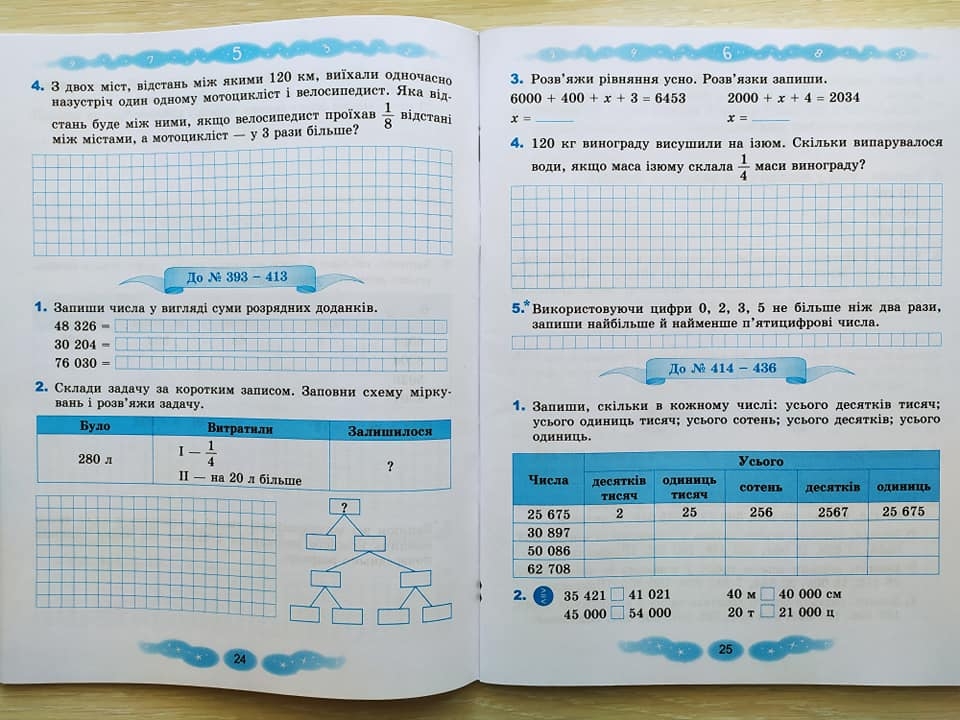 9 7 5 3
4. З двох міст, відстань між якими 120 км, виїхали одночасно
назустріч один одному мотоцикліст і велосипедист. Яка від-
стань буде між ними, якщо велосипедист проїхав 1/8 відстані
між містами, а мотоцикліст — у 3 рази більше?
До № 393 – 413
1. Запиши числа у вигляді суми розрядних доданків.
48 326 =
30 204 =
76 030 =
2. Склади задачу за коротким записом. Заповни схему мірку-
вань і розв’яжи задачу.
Було Витратили Залишилося
280 л I — 1/4 ?
II — на 20 л більше
?
24
6 8 10
3. Розв’яжи рівняння усно. Розв’язки запиши.
6000 + 400 + x + 3 = 6453 2000 + x + 4 = 2034
x = ______ x = ______
4. 120 кг винограду висушили на ізюм. Скільки випарувалося
води, якщо маса ізюму склала 1/4 маси винограду?
5.* Використовуючи цифри 0, 2, 3, 5 не більше ніж два рази,
запиши найбільше й найменше п’ятицифрові числа.
До № 414 – 436
1. Запиши, скільки в кожному числі: усього десятків тисяч;
усього одиниць тисяч; усього сотень; усього десятків; усього
одиниць.
Числа Усього
десятків тисяч одиниць тисяч сотень десятків одиниць
25 675 2 25 256 2567 25 675
30 897
50 086
62 708
2. > < = 35 421 □ 41 021 40 м □ 40 000 см
45 000 □ 54 000 20 т □ 21 000 ц
25